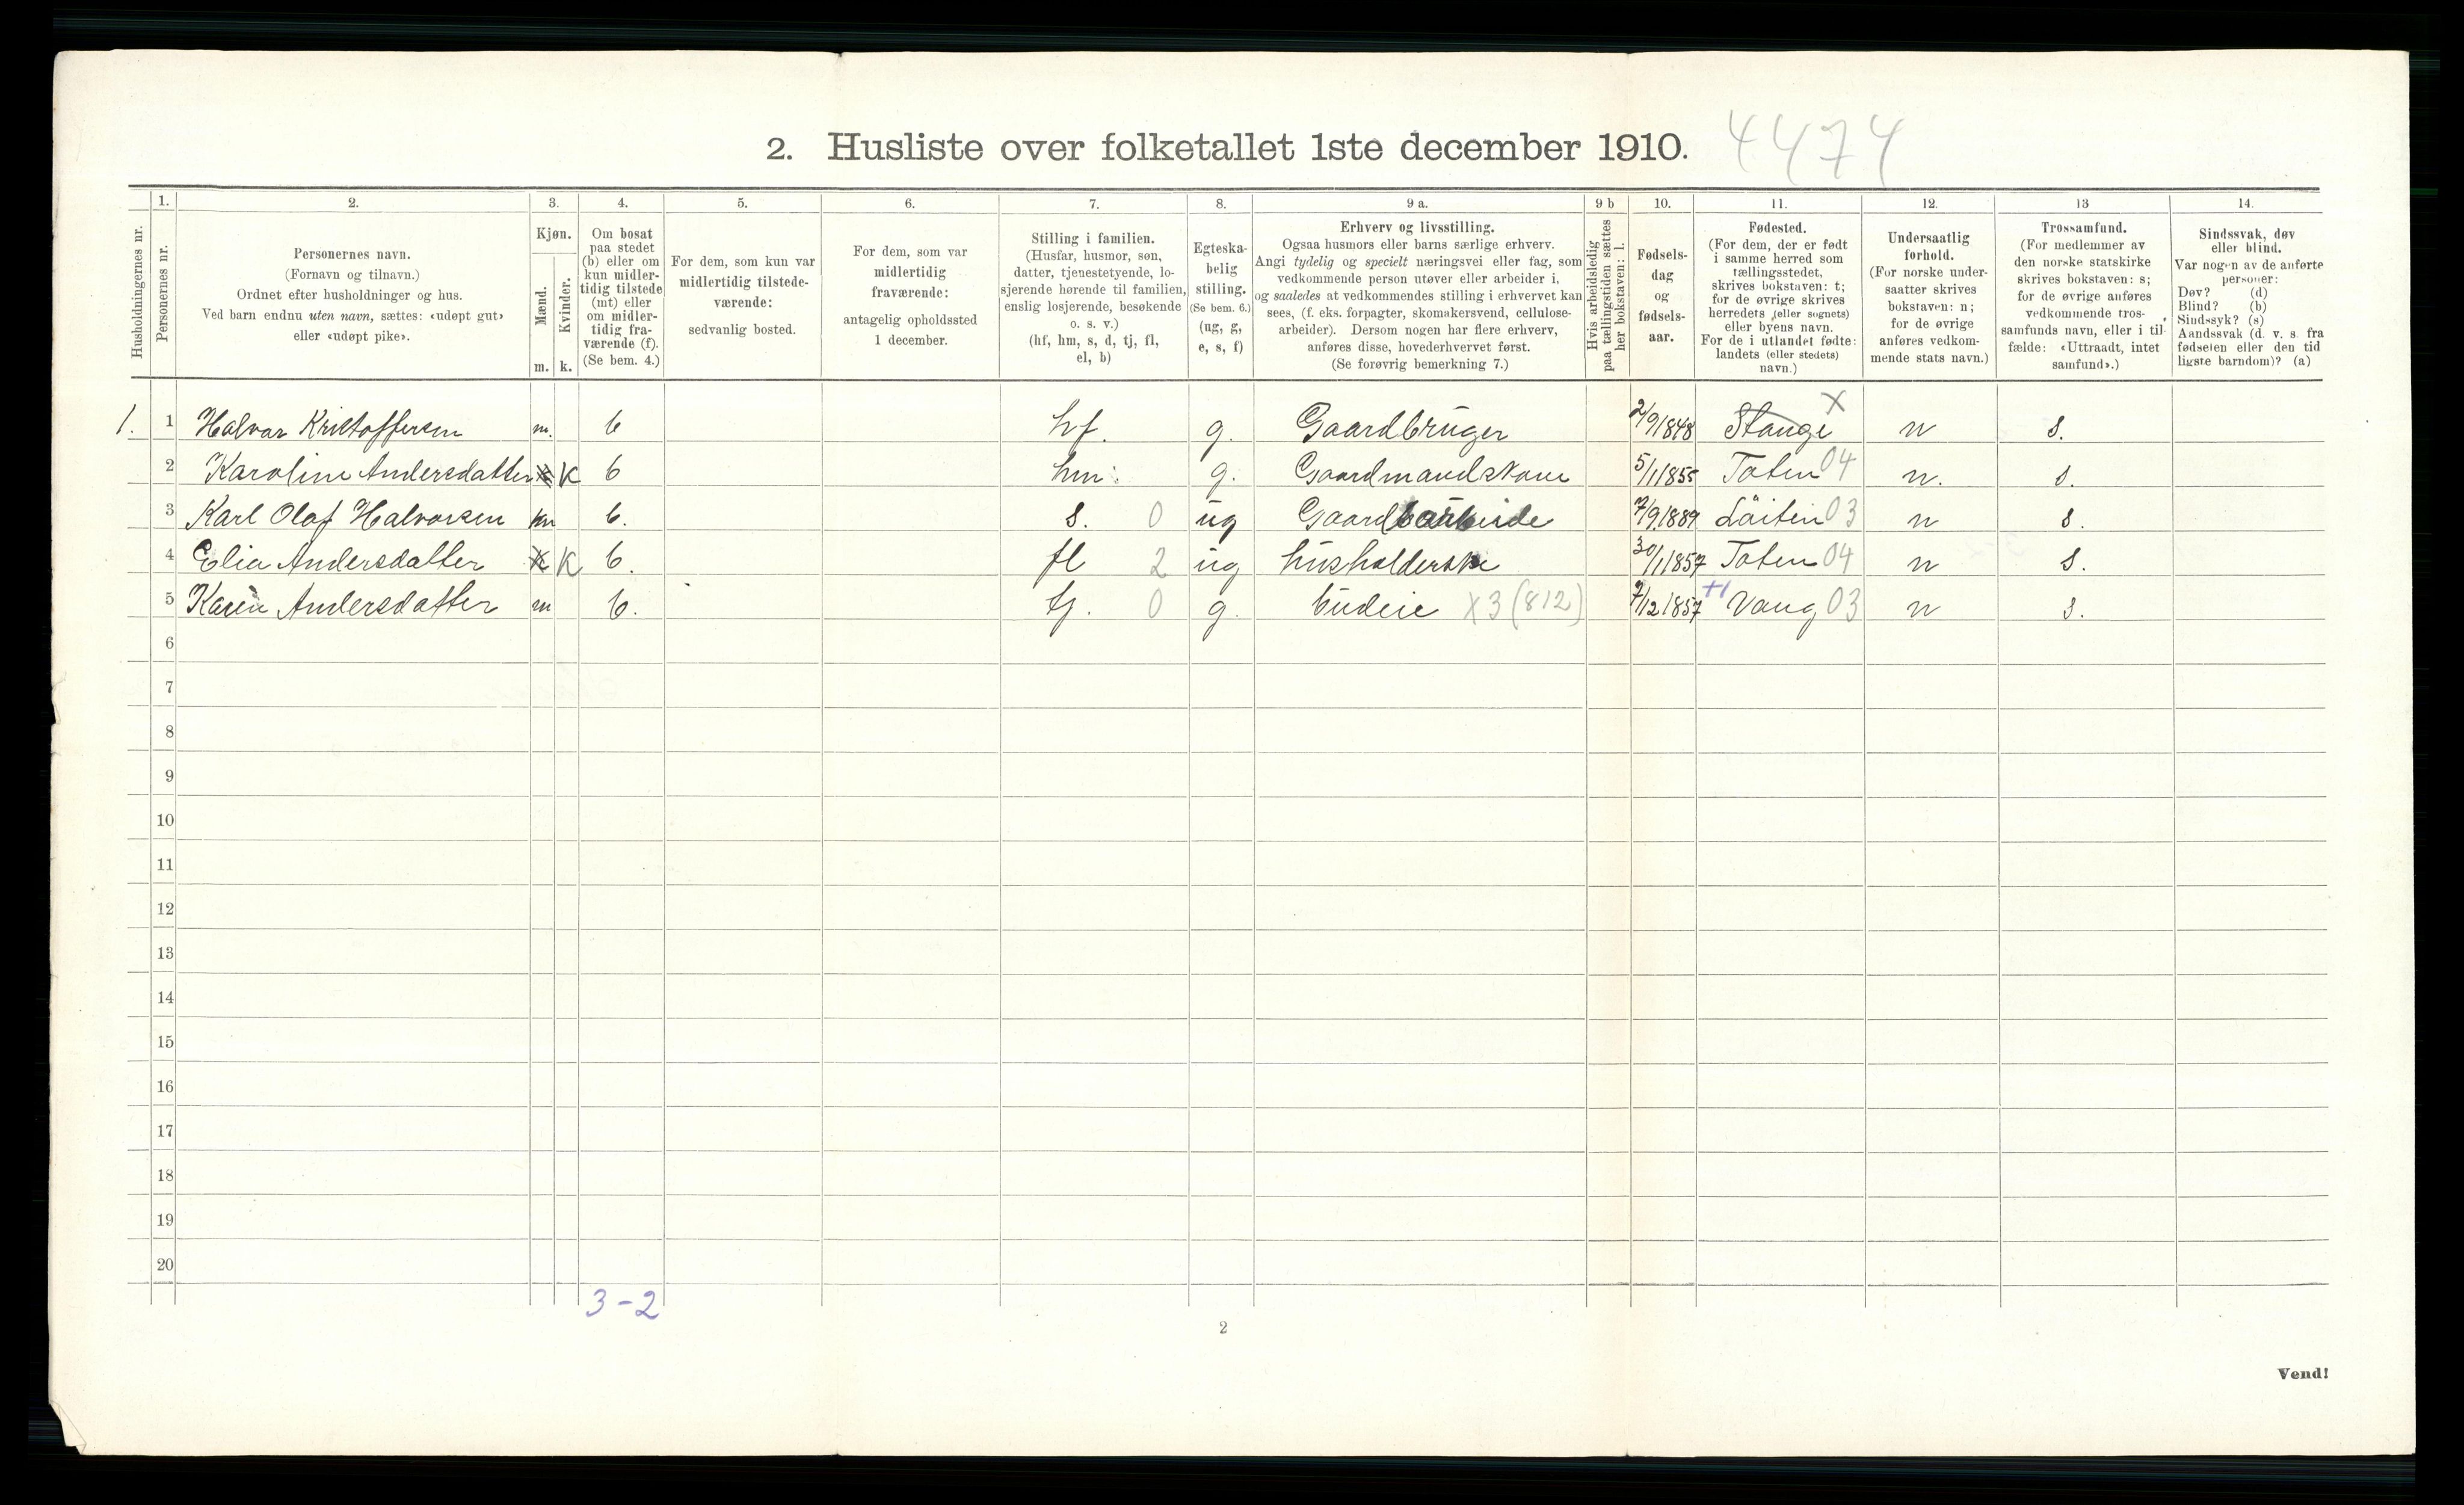 2. Husliste over folketallet 1ste december 1910. 4474
1. 2. 3. 4. 5. 6. 7. 8. 9 a. 9 b 10. 11. 12. 13 14.
Husholdningernes nr.
Personernes nr.
Personernes navn.
(Fornavn og tilnavn.)
Ordnet efter husholdninger og hus.
Ved barn endnu uten navn, sættes: «udøpt gut»
eller «udøpt pike».
Kjøn.
Mænd.
Kvinder.
m. k.
Om bosat
paa stedet
(b) eller om
kun midler-
tidig tilstede
(mt) eller
om midler-
tidig fra-
værende (f).
(Se bem. 4.)
For dem, som kun var
midlertidig tilstede-
værende:
sedvanlig bosted.
For dem, som var
midlertidig
fraværende:
antagelig opholdssted
1 december.
Stilling i familien.
(Husfar, husmor, søn,
datter, tjenestetyende, lo-
sjerende hørende til familien,
enslig losjerende, besøkende
o. s. v.)
(hf, hm, s, d, tj, fl,
el, b)
Egteska-
belig
stilling.
(Se bem. 6.)
(ug, g,
e, s, f)
Erhverv og livsstilling.
Ogsaa husmors eller barns særlige erhverv.
Angi tydelig og specielt næringsvei eller fag, som
vedkommende person utøver eller arbeider i,
og saaledes at vedkommendes stilling i erhvervet kan
sees, (f. eks. forpagter, skomakersvend, cellulose-
arbeider). Dersom nogen har flere erhverv,
anføres disse, hovederhvervet først.
(Se forøvrig bemerkning 7.)
Hvis arbeidsledig
paa tællingstiden sættes
her bokstaven: l.
Fødsels-
dag
og
fødsels-
aar.
Fødested.
(For dem, der er født
i samme herred som
tællingsstedet,
skrives bokstaven: t;
for de øvrige skrives
herredets (eller sognets)
eller byens navn.
For de i utlandet fødte:
landets (eller stedets)
navn.)
Undersaatlig
forhold.
(For norske under-
saatter skrives
bokstaven: n;
for de øvrige
anføres vedkom-
mende stats navn.)
Trossamfund.
(For medlemmer av
den norske statskirke
skrives bokstaven: s;
for de øvrige anføres
vedkommende tros-
samfunds navn, eller i til-
fælde: «Uttraadt, intet
samfund».)
Sindssvak, døv
eller blind.
Var nogen av de anførte
personer:
Døv? (d)
Blind? (b)
Sindssyk? (s)
Aandssvak (d. v. s. fra
fødselen eller den tid
ligste barndom)? (a)
1. 1 Halvar Kristoffersen m. b hf. g. Gaardbruger 2/9 1848 Stange X n s.
2 Karoline Andersdatter k b hm. g. Gaardmandskone 5/1 1855 Toten 04 n. s.
3 Karl Olaf Halvorsen m b. s. 0 ug Gaardbarbeide 7/9 1889 Løiten 03 n s.
4 Elia Andersdatter k b. fl 2 ug husholderske 30/1 1857 Toten 04 n s.
5 Karin Andersdatter m b. tj. 0 g. budeie X3 (812) 7/12 1857 +1 Vang 03 n s.
6
7
8
9
10
11
12
13
14
15
16
17
18
19
20
3-2
2
Vend!